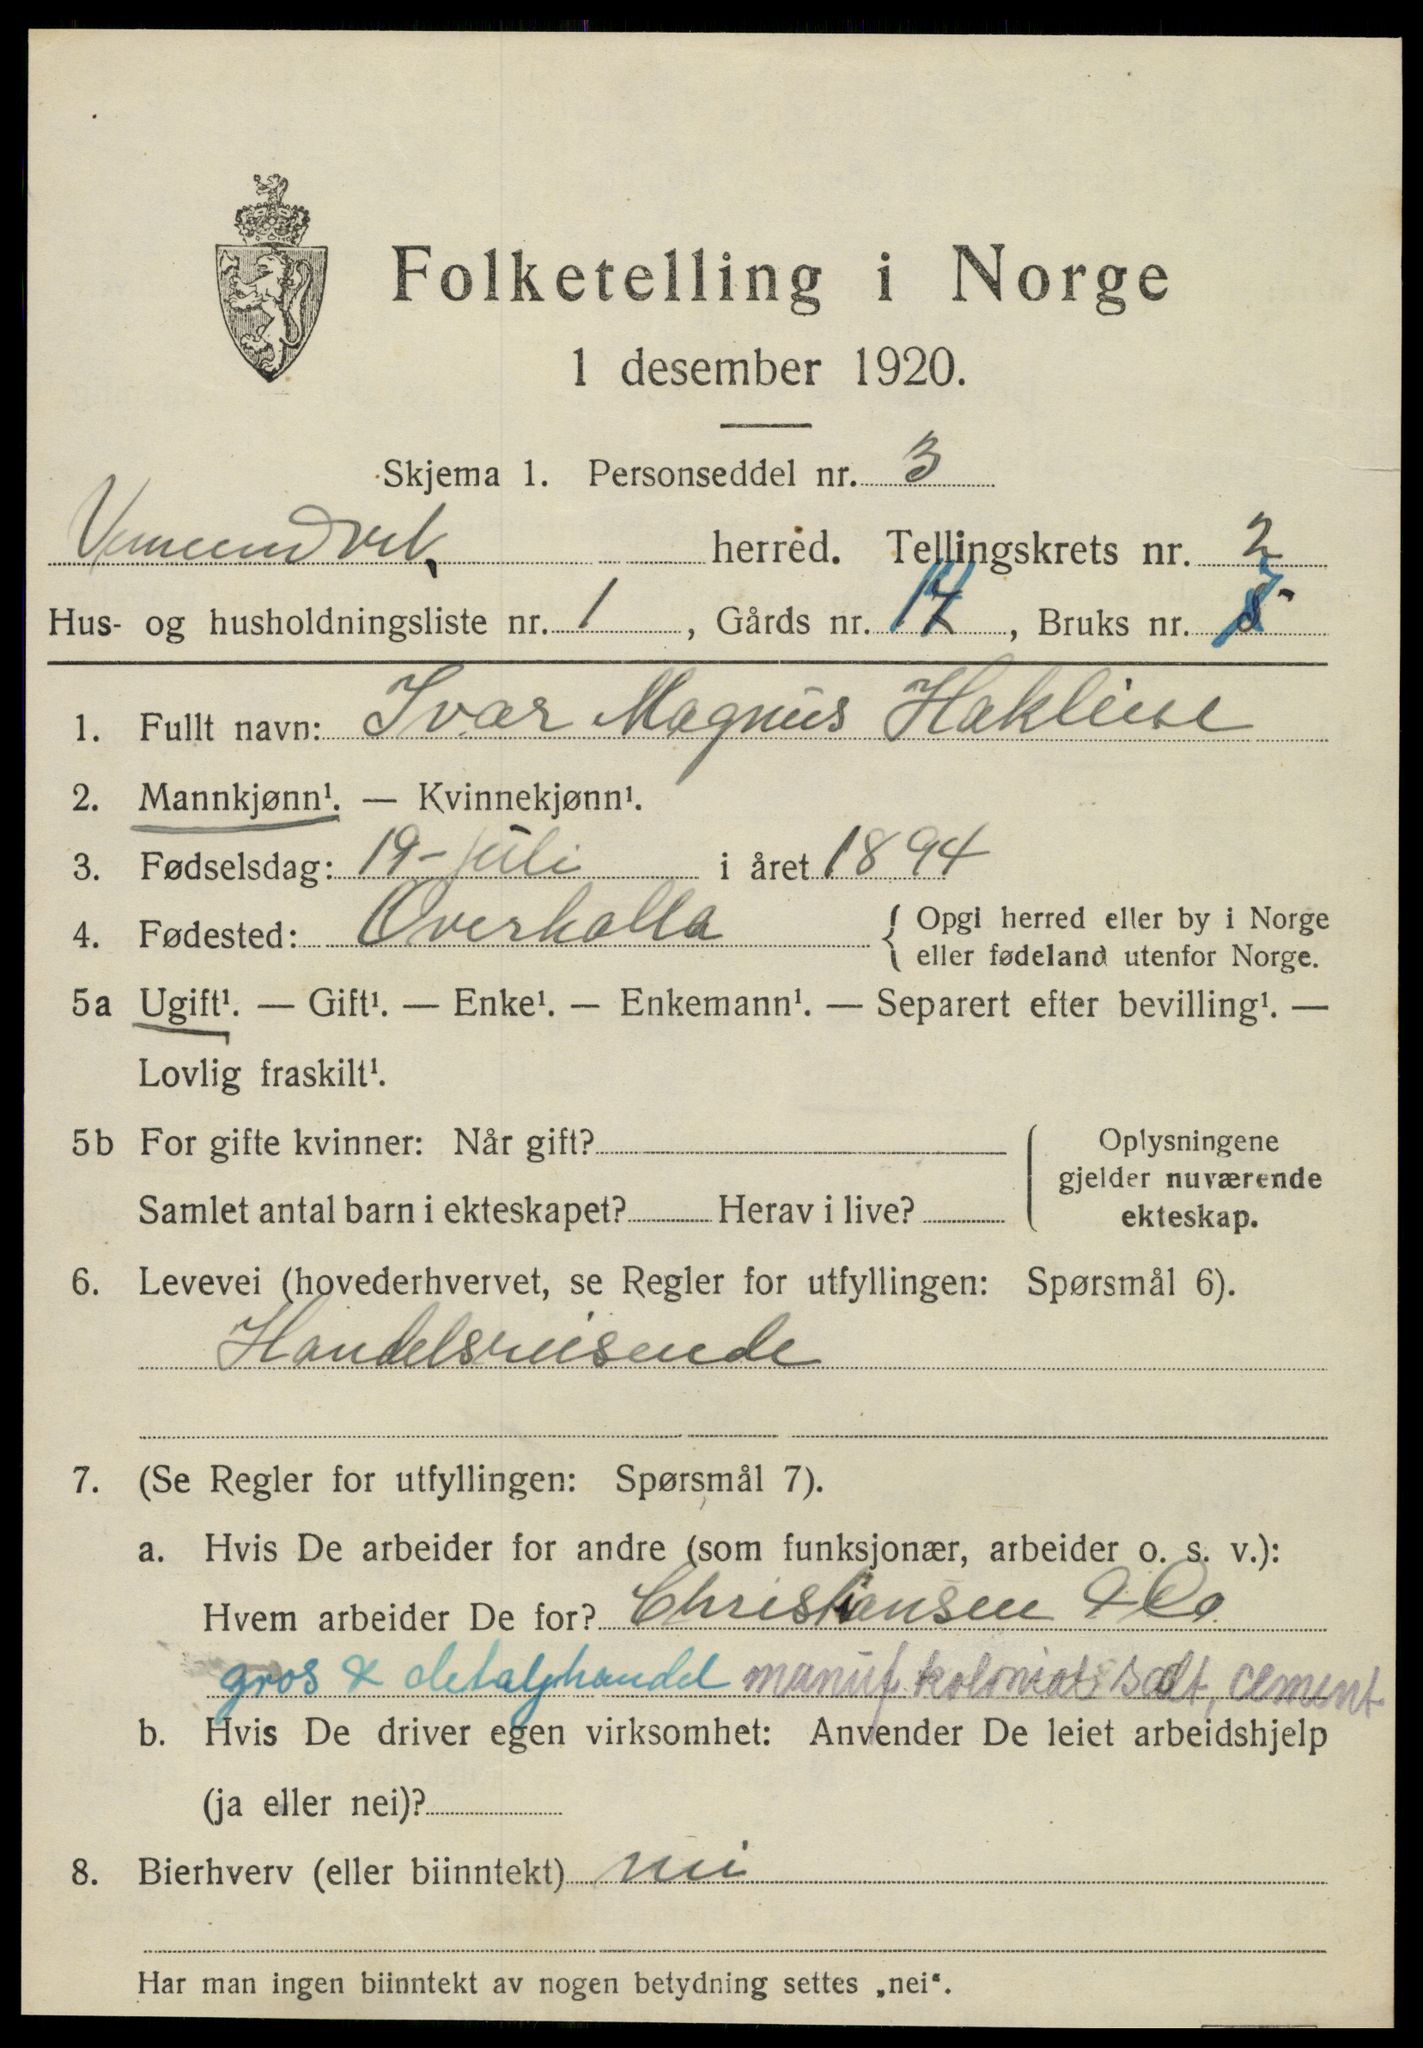 Folketelling i Norge
1 desember 1920.
Skjema 1. Personseddel nr. 3
Vemundvik herred. Tellingskrets nr. 2
Hus- og husholdningsliste nr. 1, Gårds nr. 14, Bruks nr.
1. Fullt navn: Ivar Magnus Haklise
2. Mannkjønn¹. — Kvinnekjønn¹.
3. Fødselsdag: 19-juli i året 1894
4. Fødested: Overhalla { Opgi herred eller by i Norge
eller fødeland utenfor Norge.
5a Ugift¹. — Gift¹. — Enke¹. — Enkemann¹. — Separert efter bevilling¹. —
Lovlig fraskilt¹.
5b For gifte kvinner: Når gift?
Samlet antal barn i ekteskapet? Herav i live?
Oplysningene
gjelder nuværende
ekteskap.
6. Levevei (hovederhvervet, se Regler for utfyllingen: Spørsmål 6).
Handelsreisende
7. (Se Regler for utfyllingen: Spørsmål 7).
a. Hvis De arbeider for andre (som funksjonær, arbeider o. s. v.):
Hvem arbeider De for? Christiansen & Co
gros & detaljhandel manuf. kolonial. salt, cement
b. Hvis De driver egen virksomhet: Anvender De leiet arbeidshjelp
(ja eller nei)?
8. Bierhverv (eller biinntekt) nei
Har man ingen biinntekt av nogen betydning settes „nei“.